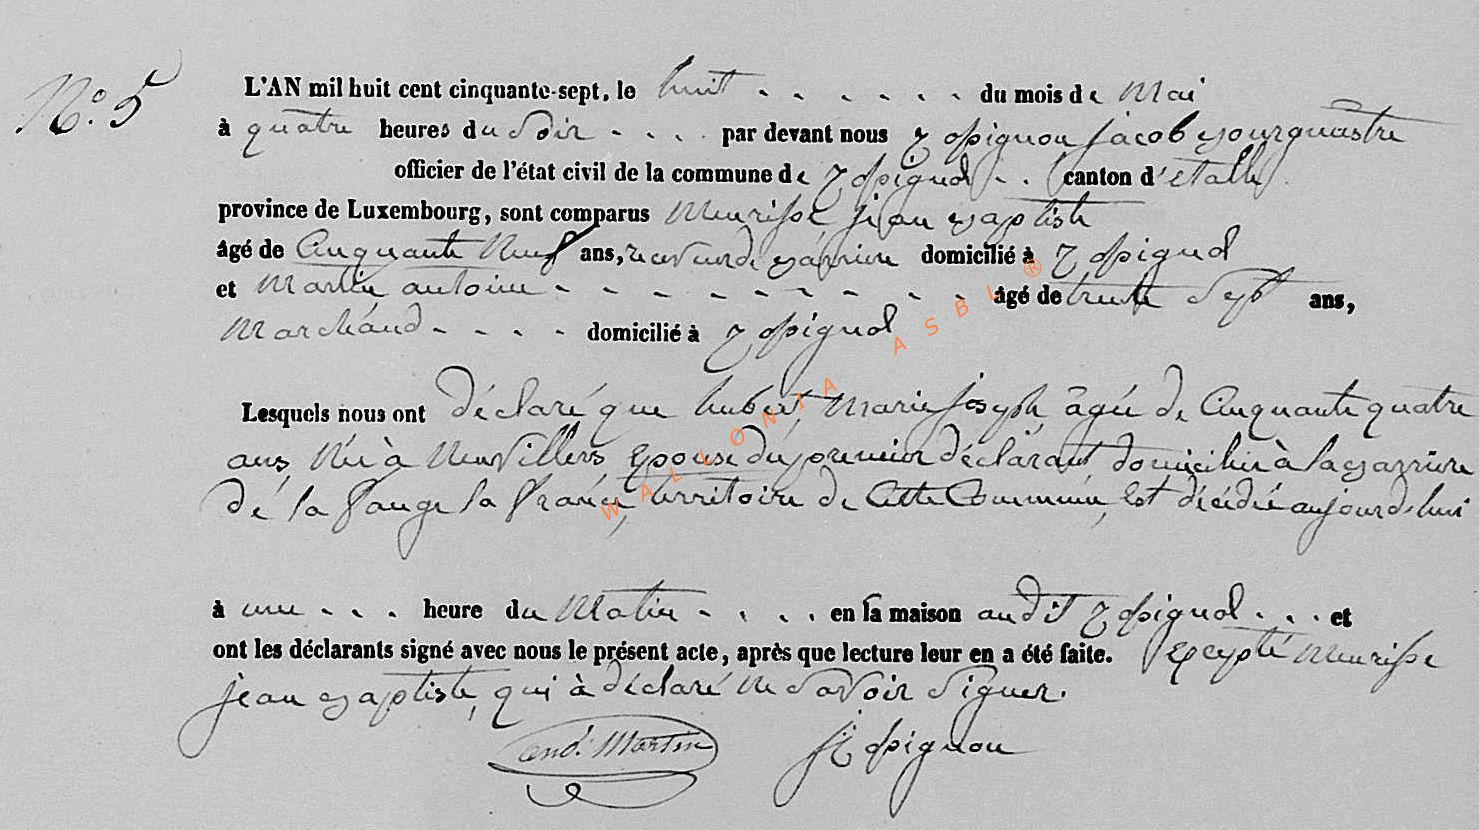 N.o 5
L'AN mil huit cent cinquante-sept, le huit - - - - - - du mois de Mai
à quatre heures du Soir - - - - par devant nous jacob
officier de l'état civil de la commune de - - canton d'étalle
province de Luxembourg, sont comparus Meurisse jean Baptiste
âgé de Cinquante Neuf ans, domicilié à
et Martin antoine - - - - - - - - - âgé de trente Sept ans,
Marchand - - - - domicilié à
Lesquels nous ont déclaré que hubert, Marie joseph, âgée de Cinquante quatre
ans, Née à Neuvillers, Epouse du premier déclarant domiciliée à la Barrière
dé la fange la france, territoire de Cette Commune, Est décédée aujourd'hui
à une - - - heure du Matin - - - - en sa maison audit - - - et
ont les déclarants signé avec nous le présent acte, après que lecture leur en a été faite. Excepté Meurisse
jean Baptiste, qui à déclaré Ne Savoir Signer.
and. Martin
WALLONIA ASBL ®